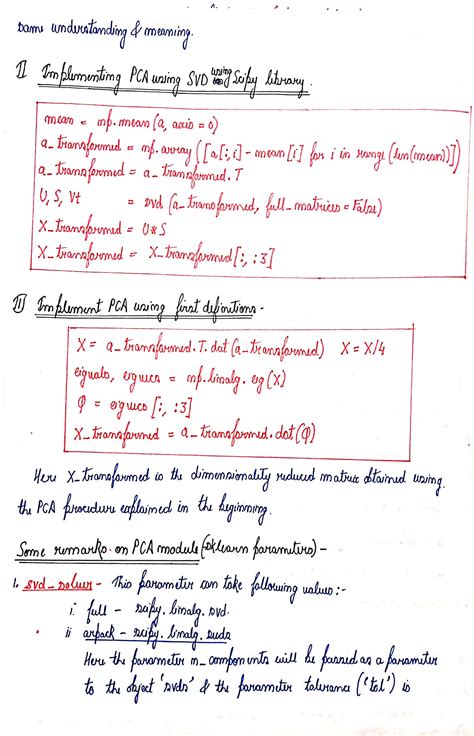 same understanding & meaning.
II Implementing PCA using SVD using Scipy library.
mean = np.mean(a, axis = 0)
a_transformed = np.array([a[:,i] - mean[i] for i in range(len(mean))])
a_transformed = a_transformed.T
U, S, Vt = svd (a_transformed, full_matrices = False)
X_transformed = U*S
X_transformed = X_transformed[:, :3]
II Implement PCA using first definitions -
X = a_transformed.T.dot(a_transformed) X = X/4
eigvals, eigvecs = np.linalg.eig(X)
φ = eigvecs [:, :3]
X_transformed = a_transformed.dot(φ)
Here X_transformed is the dimensionality reduced matrix obtained using
the PCA procedure explained in the beginning.
Some remarks on PCA module (sklearn parameters) -
1. svd_solver - This parameter can take following values :-
i. full - scipy.linalg.svd.
ii arpack - scipy.linalg.svds
Here the parameter n_components will be passed as a parameter
to the object 'svds' & the parameter tolerance ('tol') is